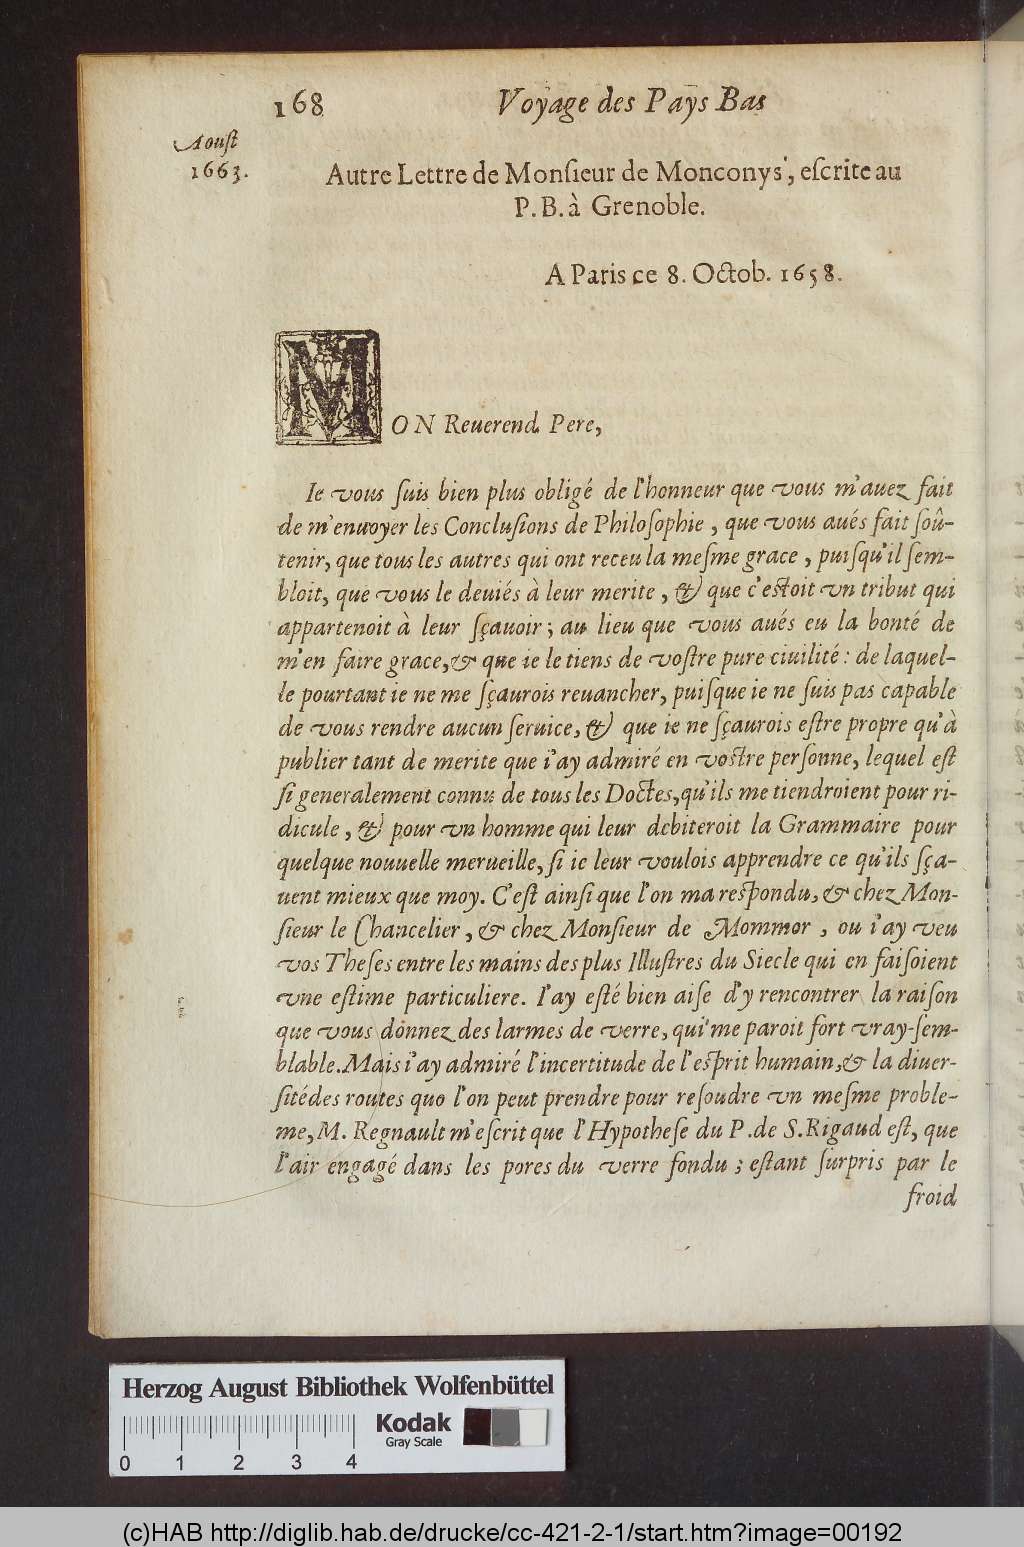 168 Voyage des Pays Bas
Aoust
1663.
Autre Lettre de Monſieur de Monconys, eſcrite au
P. B. à Grenoble.
A Paris ce 8. Octob. 1658.
MON Reuerend Pere,
Ie vous ſuis bien plus obligé de l'honneur que vous m'auez fait
de m'enuoyer les Concluſions de Philoſophie, que vous aués fait ſoû-
tenir, que tous les autres qui ont receu la meſme grace, puiſqu'il ſem-
bloit, que vous le deuiés à leur merite, & que c'eſtoit vn tribut qui
appartenoit à leur ſçauoir; au lieu que vous aués eu la bonté de
m'en faire grace, & que ie le tiens de voſtre pure ciuilité: de laquel-
le pourtant ie ne me ſçaurois reuancher, puiſque ie ne ſuis pas capable
de vous rendre aucun ſeruice, & que ie ne ſçaurois eſtre propre qu'à
publier tant de merite que i'ay admiré en voſtre perſonne, lequel eſt
ſi generalement connu de tous les Doctes, qu'ils me tiendroient pour ri-
dicule, & pour vn homme qui leur debiteroit la Grammaire pour
quelque nouuelle merueille, ſi ie leur voulois apprendre ce qu'ils ſça-
uent mieux que moy. C'eſt ainſi que l'on ma reſpondu, & chez Mon-
ſieur le Chancelier, & chez Monſieur de Mommor, ou i'ay veu
vos Theſes entre les mains des plus Illuſtres du Siecle qui en faiſoient
vne eſtime particuliere. I'ay eſté bien aiſe d'y rencontrer la raiſon
que vous donnez des larmes de verre, qui me paroit fort vray-ſem-
blable. Mais i'ay admiré l'incertitude de l'eſprit humain, & la diuer-
ſité des routes que l'on peut prendre pour reſoudre vn meſme proble-
me, M. Regnault m'eſcrit que l'Hypotheſe du P. de S. Rigaud eſt, que
l'air engagé dans les pores du verre fondu; eſtant ſurpris par le
froid
Herzog August Bibliothek Wolfenbüttel
Kodak
Gray Scale
0 1 2 3 4
(c)HAB http://diglib.hab.de/drucke/cc-421-2-1/start.htm?image=00192